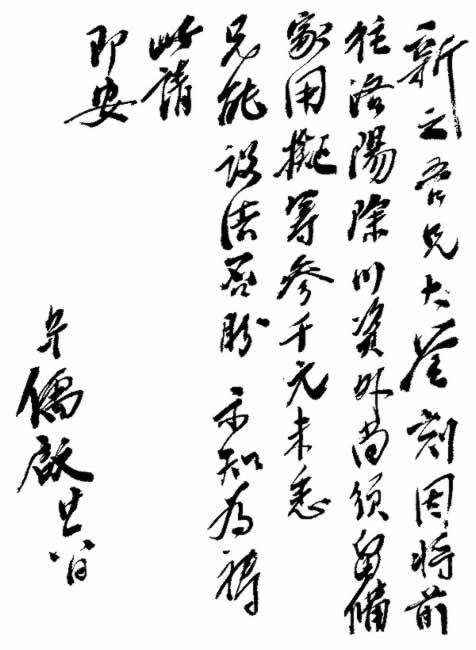 新之吾兄大鑒刻因將前
往洛陽除川資外尚須留備
家用擬籌參千元未悉
兄能設法否盼 示知為禱
此請
即安
弟僑啟廿八日